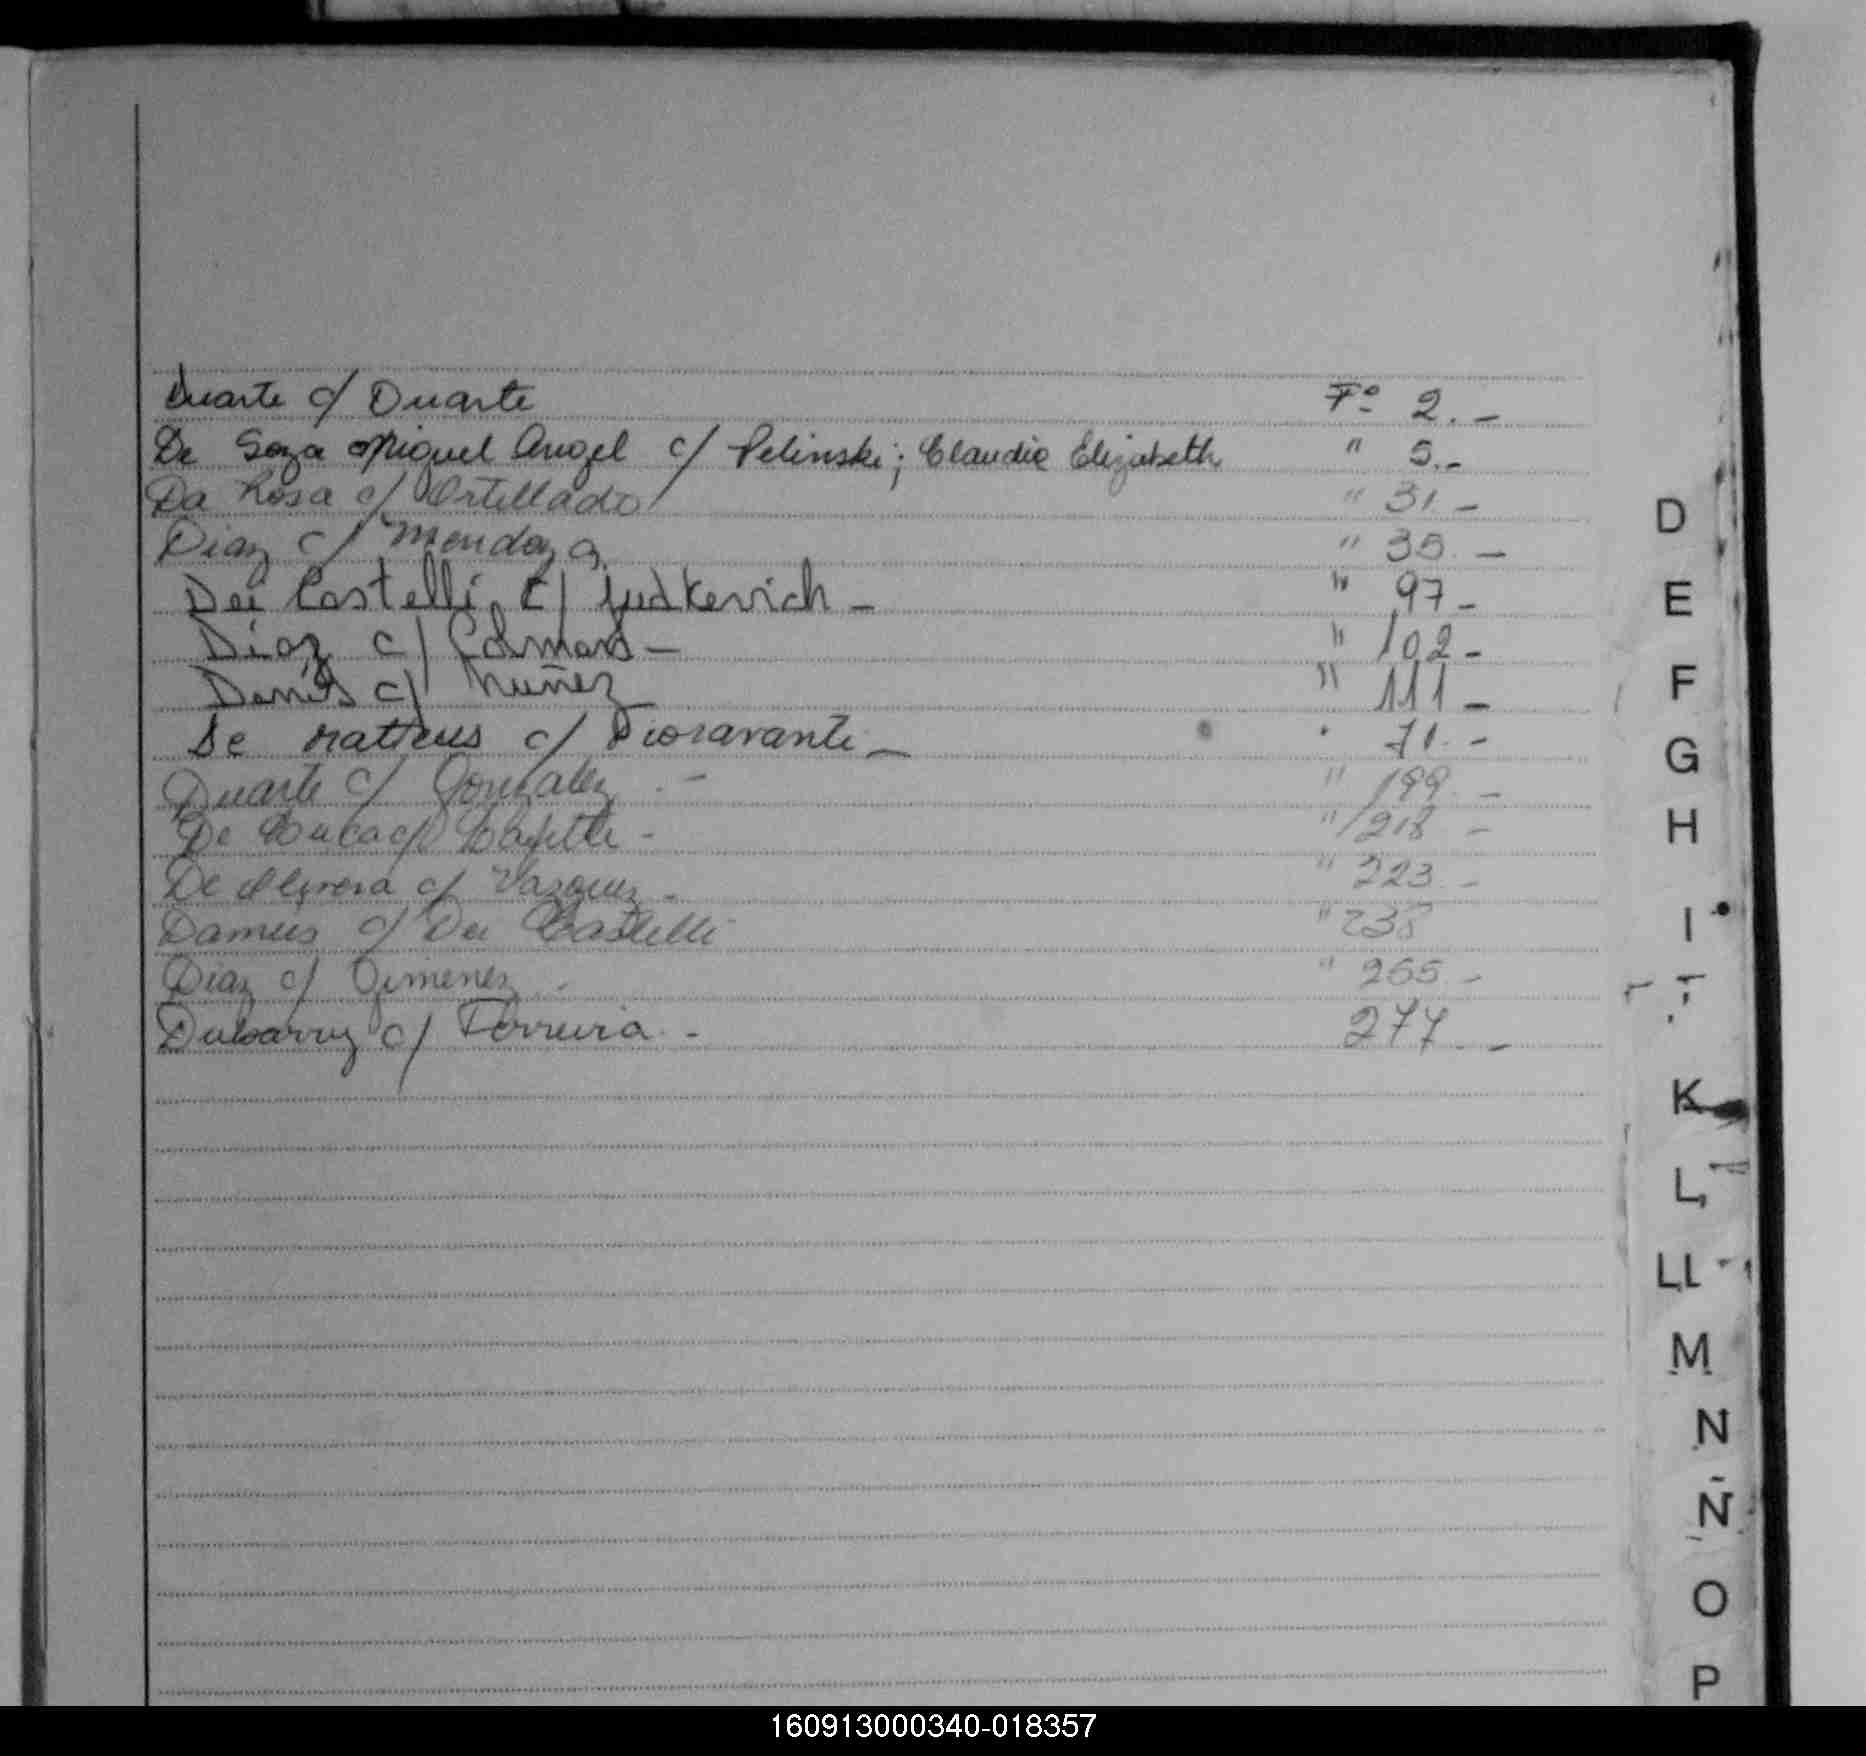 Duarte c/ Duarte Fº 2.-
De Soza Miguel Angel c/ Pelinski; Claudia Elizabeth " 5.-
Da Rosa c/ Ortellado " 31.-
Diaz c/ Mendoza " 35.-
Dei Castelli c/ Judkevich - " 97-
Díaz c/ " 102-
Denis c/ Nuñez " 111-
De Matteus c/ Fioravante - " 71.-
Duarte c/ Gonzalez .- " 199.-
De c/ - " 218 -
De Olivera c/ Vazquez - " 223.-
Dameus c/ Dei Castelli " 238
Diaz c/ Gimenez .- " 265.-
Dubarry c/ Ferreira .- 277.-
D
E
F
G
H
I
K
L
LL
M
N
Ñ
O
P
160913000340-018357